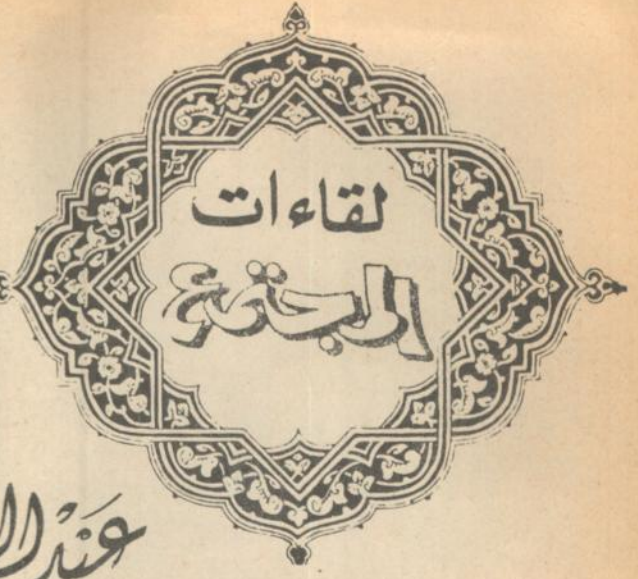 لقاءات
المجتمع
عبد ال